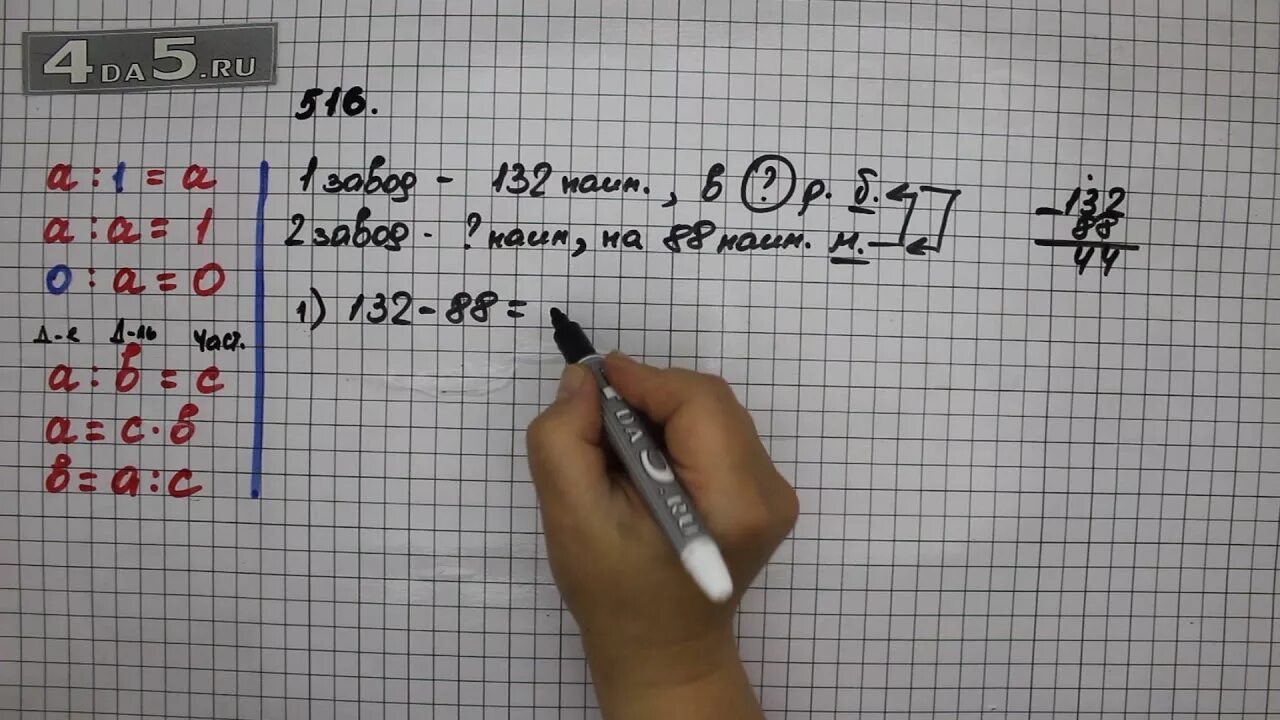 4DA5.RU
516.
1 завод - 132 наим., в ? р. б.
2 завод - ? наим, на 88 наим. м.
1) 132 - 88 =
132
- 88
44
a : 1 = a
a : a = 1
0 : a = 0
Д-е Д-ль част.
a : в = c
a = c · в
в = a : c
4DA5.RU